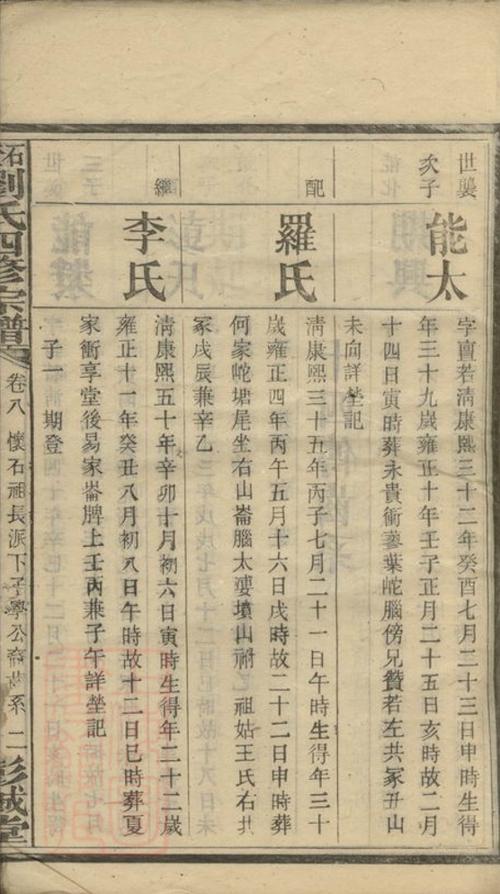 世襲
次子
能太
字亶若淸康熙三十二年癸酉七月二十三日申時生得
年三十九歲雍正十年壬子正月二十五日亥時故二月
十四日寅時葬永貴衝蔘葉岮腦傍兄贊若左共冢丑山
未向詳塋記
配
羅氏
淸康熙三十五年丙子七月二十一日午時生得年三十
歲雍正四年丙午五月十六日戌時故二十二日申時葬
何家岮塘尾坐右山崙腦太婆墳山祔乙祖姑王氏右共
冢戌辰兼辛乙
繼
李氏
淸康熙五十年辛卯十月初六日寅時生得年二十二歲
雍正十一年癸丑八月初八日午時故十二日巳時葬夏
家衝享堂後易家崙牌上壬丙兼子午詳塋記
子一 期登
石
劉氏四修宗譜
卷八 懷石祖長派下子學公裔齒系 二
彭城堂